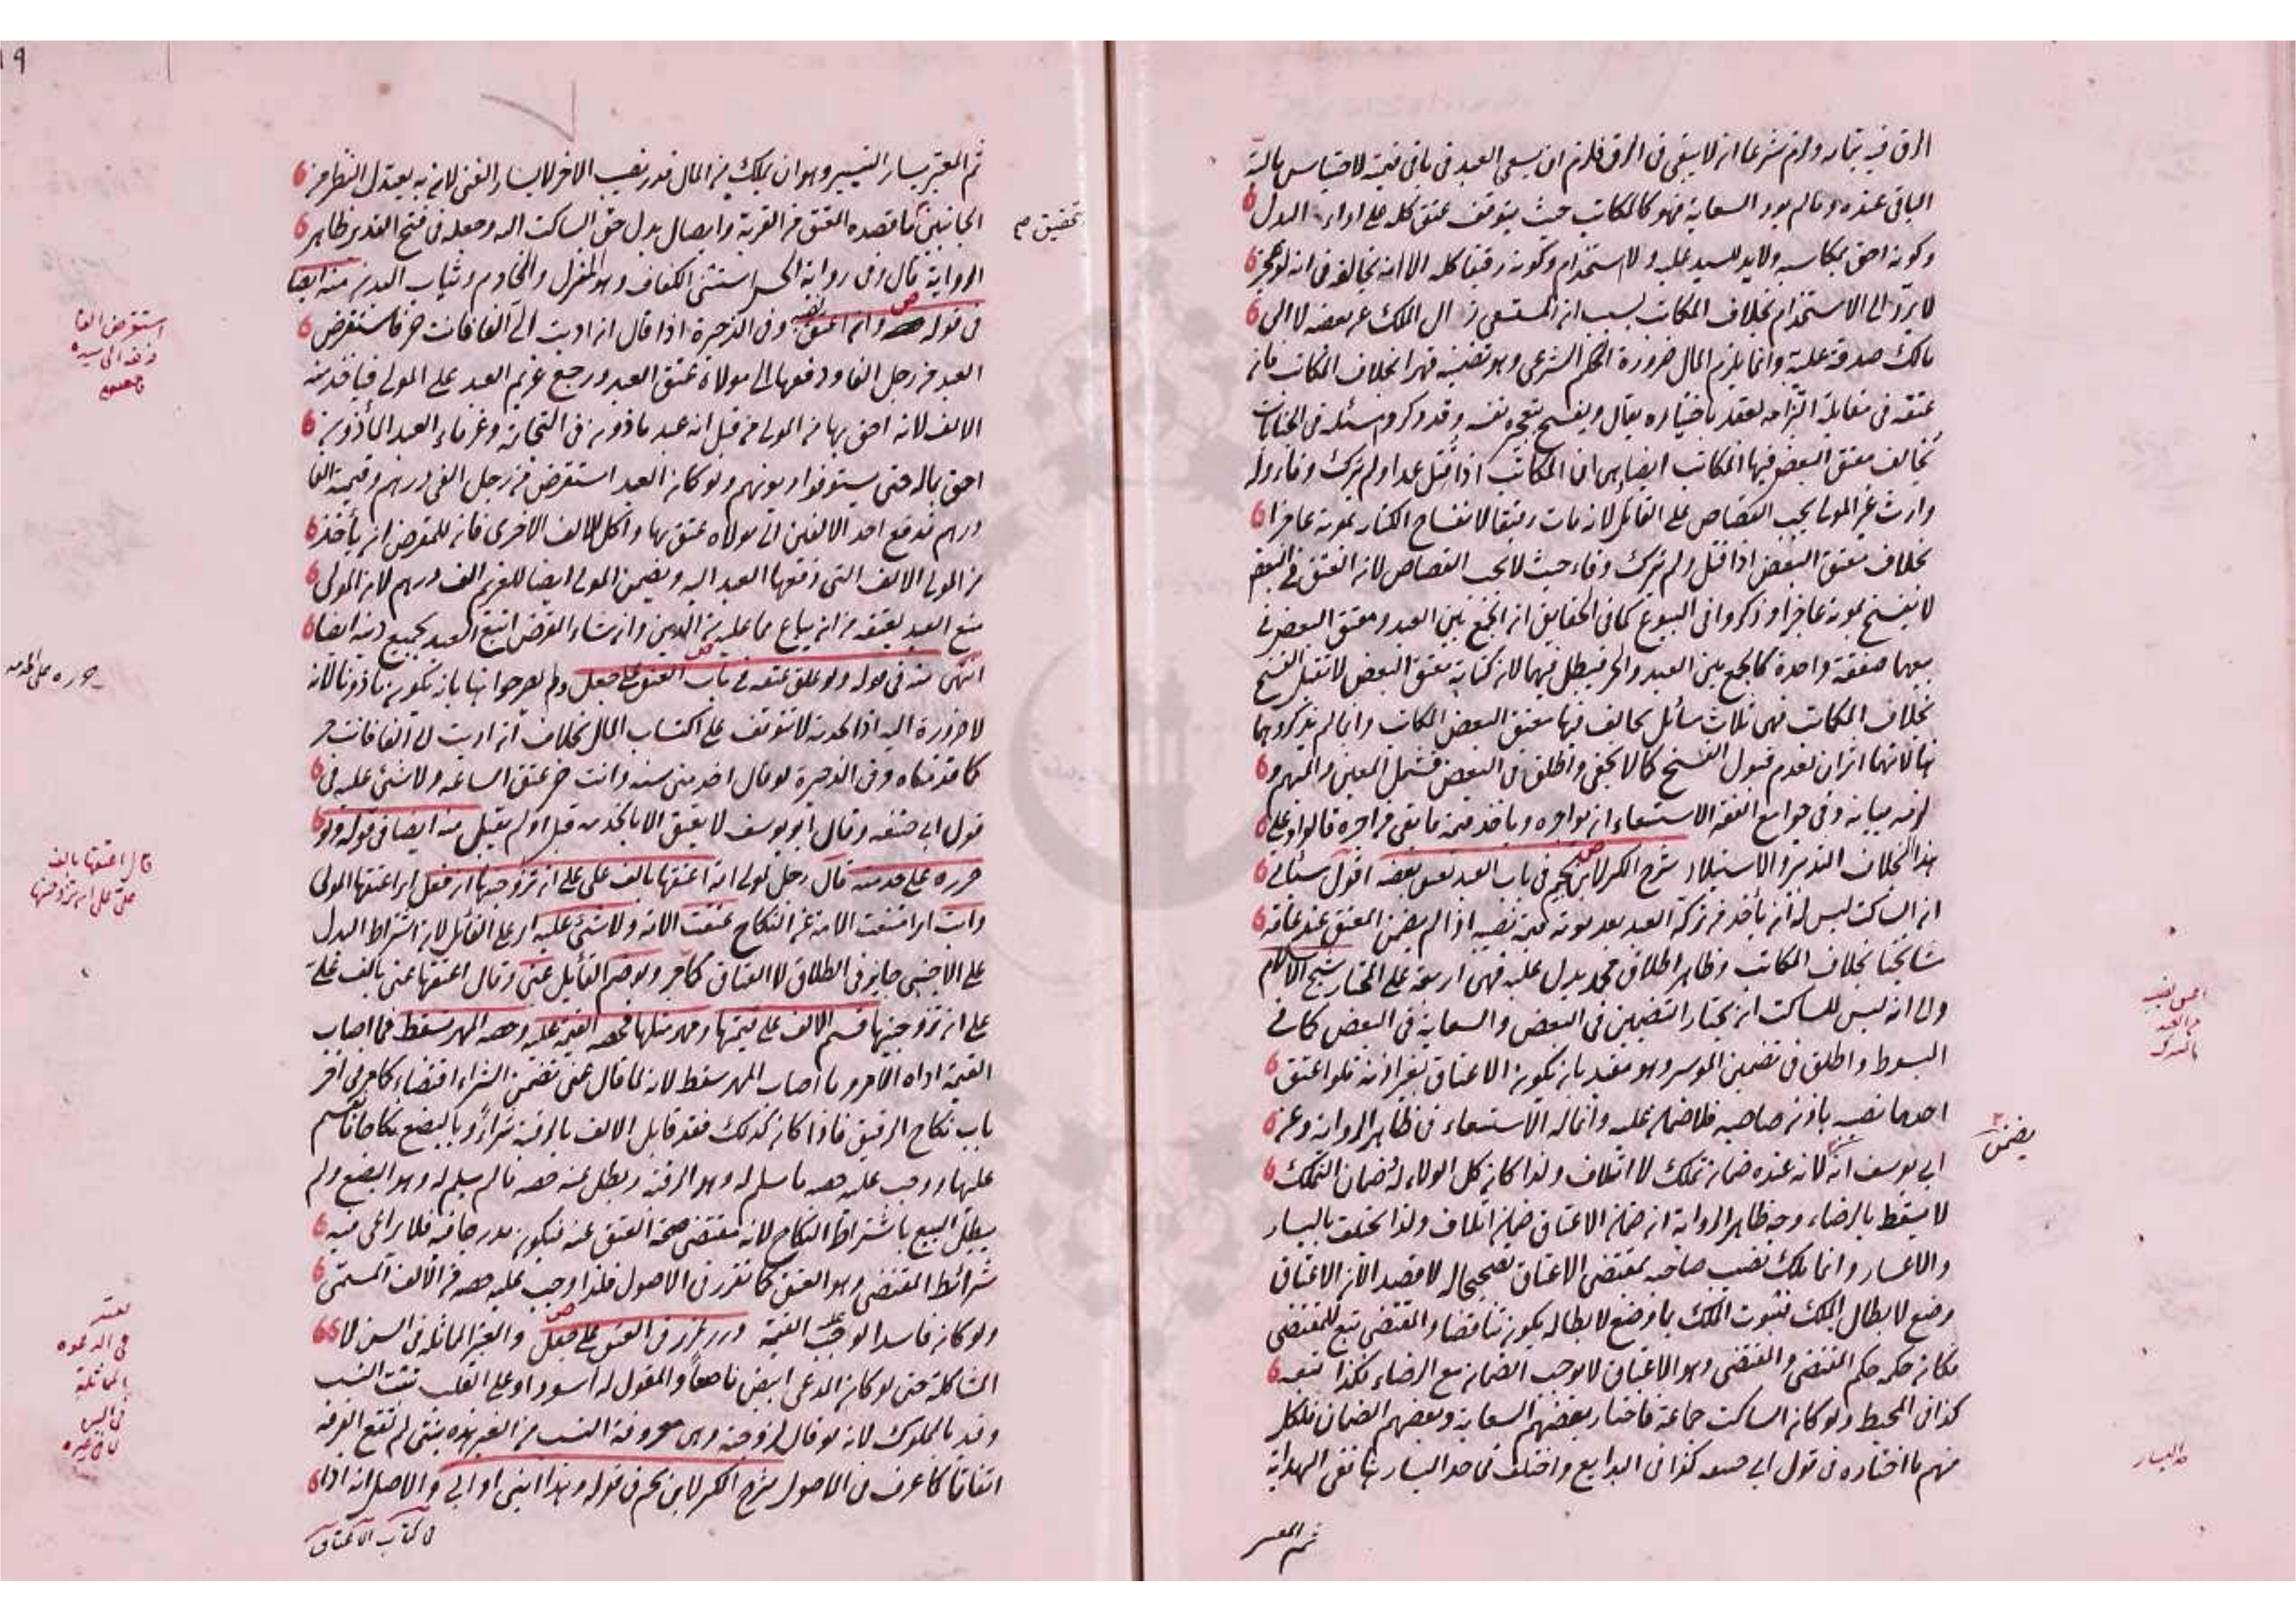 الرق فيه بتمامه ولزم شرعا ان لا يبقى في الرق فلزم ان يسعى العبد في باقي قيمته لاحتباس مالية
الباقي عنده وما لم يود السعاية فهو كالمكاتب حيث يتوقف عتق كله على اداء البدل
وكونه احق بمكاسبه ولا يد للسيد عليه ولا استخدام وكونه رقيقا كله الا انه يخالفه في انه لو عجز
لا يرد الى الاستخدام بخلاف المكاتب بسبب ان المستسعى زال الملك عن بعضه لا الى
مالك صدقة عليه وانما يلزم المال ضرورة الحكم الشرعي وهو تضمينه قهرا بخلاف المكاتب فان
عتقه في مقابلة التزامه بعقد باختياره يقال ويفسخ بتعجيزه نفسه وقد ذكروا مسئلة في الجنايات
يخالف معتق البعض فيها المكاتب ايضا هي ان المكاتب اذا قتل عمدا ولم يترك وفاء وله
وارث غير المولى يجب القصاص على القاتل لانه مات رقيقا لانفساخ الكتابة بموته عاجزا
بخلاف معتق البعض اذا قتل ولم يترك وفاء حيث لا يجب القصاص لان العتق في البعض
لا ينفسخ بموته عاجزا وذكروا في البيوع كما في الحقايق ان الجمع بين العبد ومعتق البعض في
بيعهما صفقة واحدة كالجمع بين العبد والحر فيبطل فيهما لان كتابة معتق البعض لا تقبل الفسخ
بخلاف المكاتب فهي ثلاث مسائل يخالف فيها معتق البعض المكاتب وانما لم يذكروهما
هنا لانهما اثران لعدم قبول الفسخ كما لا يخفى واطلق في البعض فشمل المعين والمبهم و
لزمه بيانه وفي جوامع الفقه الاستسعاء ان يواجره وياخذ قيمة ما بقي من اجره قالوا وعلى
هذا الخلاف التدبير والاستيلاد شرح الكنز لابن نجيم في باب العبد يعتق بعضه اقول سيأتي
ان الساكت ليس له ان يأخذ من تركة العبد بعد موته قيمة نصيبه اذا لم يضمن المعتق عند عامة
مشايخنا بخلاف المكاتب وظاهر اطلاق محمد يدل عليه فهي اربعة على المختار شيخ الاسلام
والى انه ليس للساكت ان يختار التضمين في البعض والسعاية في البعض كما في
المبسوط واطلق في تضمين الموسر وهو مقيد بان يكون الاعتاق بغير اذنه فلو اعتق
احدهما نصيبه باذن صاحبه فلا ضمان عليه وانما له الاستسعاء في ظاهر الرواية وعن
ابي يوسف انه لانه عنده ضمان تملك لا اتلاف ولذا كان كل الولاء له وضمان التملك
يضمن
لا يسقط بالرضاء وجه ظاهر الرواية ان ضمان الاعتاق ضمان اتلاف ولذا يختلف باليسار
والاعسار وانما ملك نصيب صاحبه بمقتضى الاعتاق تصحيحا له لا قصدا لان الاعتاق
وضع لابطال الملك فثبوت الملك بما وضع لابطاله يكون تناقضا والمقتضى تبع للمقتضي
فكان حكمه حكم المقتضي والمقتضي وهو الاعتاق لا يوجب الضمان مع الرضاء فكذا تبعه
كذا في المحيط ولو كان الساكت جماعة فاختار بعضهم السعاية وبعضهم الضمان فلكل
منهم ما اختاره في قول ابي حنيفة كذا في البدايع واختلف في حد اليسار هنا ففي الهداية
حد اليسار
ثم المعتبر
ثم المعتبر يسار التيسير وهو ان يملك من المال قدر نصيب الاخر لا يسار الغنى لان به يعتدل النظر من
الجانبين بتحقيق ما قصده المعتق من القربة وايصال بدل حق الساكت اليه وجعله في فتح القدير ظاهر
الرواية قال وفي رواية الحسن استثنى الكفاف وهو المنزل والخادم وثياب البدن منه ايضا
في قوله وان اعتق نصيبه وفي الذخيرة اذا قال ان اديت الي الفا فانت حر فاستقرض
استقرض الفا
فدفعه الى سيده
العبد من رجل الفا ودفعها الى مولاه عتق العبد ورجع غريم العبد على المولى فياخذ منه
الالف لانه احق بها من المولى من قبل انه عبد ماذون في التجارة وغرماء العبد المأذون
احق بماله حتى يستوفوا ديونهم ولو كان العبد استقرض من رجل الفي درهم وقيمته الفا
درهم فدفع احد الالفين الى مولاه عتق بها واكل الالف الاخرى فان للمقرض ان يأخذ
من المولى الالف التي دفعها العبد اليه ويضمن المولى ايضا للغريم الف درهم لان المولى
منع العبد بعتقه من ان يباع بما عليه من الدين وان شاء المقرض اتبع العبد بجميع دينه ايضا
انتهى منه في قوله ولو علق عتقه في باب العتق على جعل ولم يصرحوا هنا بانه يكون ماذونا لانه
حرره على خدمته
لا ضرورة اليه اذ الخدمة لا تتوقف على اكتساب المال بخلاف ان اديت الي الفا فانت حر
كما قدمناه وفي الذخيرة لو قال اخدمني سنة وانت حر عتق الساعة ولا شئ عليه في
قول ابي حنيفة وقال ابو يوسف لا يعتق الا بالخدمة قبل او لم يقبل منه ايضا في قوله ولو
حرره على خدمته قال رجل لمولى امة اعتقها بالف علي على ان تزوجنيها ان فعل اي اعتقها المولى
قال اعتقها بالف
علي على ان تزوجنيها
وابت اي امتنعت الامة عن النكاح عتقت الامة ولا شئ عليه اي على القائل لان اشتراط البدل
على الاجنبي جايز في الطلاق لا العتاق كما مر ولو ضم القائل عني وقال اعتقها عني بالف علي
على ان تزوجنيها قسم الالف على قيمتها ومهر مثلها فحصة القيمة عليه وحصة المهر تسقط فما اصاب
القيمة اداه الامر وما اصاب المهر سقط لانه لما قال عني تضمن الشراء اقتضاء كما مر في اخر
باب نكاح الرقيق فاذا كان كذلك فقد قابل الالف بالرقبة شراءً وبالبضع نكاحا فانقسم
عليها ووجب عليه حصة ما سلم له وهو الرقبة وبطل عنه حصة ما لم يسلم له وهو البضع ولم
يبطل البيع باشتراط النكاح لانه مقتضى صحة العتق عنه فيكون مدرجا فيه فلا يراعى فيه
شرائط المقتضى وهو العتق كما تقرر في الاصول فلذا وجب عليه حصة من الالف المسمى
ولو كان فاسدا لوجب القيمة درر غرر في العتق على جعل والمعتبر المماثلة في السن لا
يعتبر
في الدعوة
المماثلة
في السن
لا في غيره
المشاكلة حتى لو كان المدعي ابيض ناصعاً والمقول له اسود او على القلب يثبت النسب
وقيد بالمملوك لانه لو قال لزوجته وهي معروفة النسب من الغير هذه بنتي لم تقع الفرقة
اتفاقا كما عرف في الاصول شرح الكنز لابن نجيم في قوله وهذا ابني او ابي والاصل انه اذا
في كتاب الاعتاق